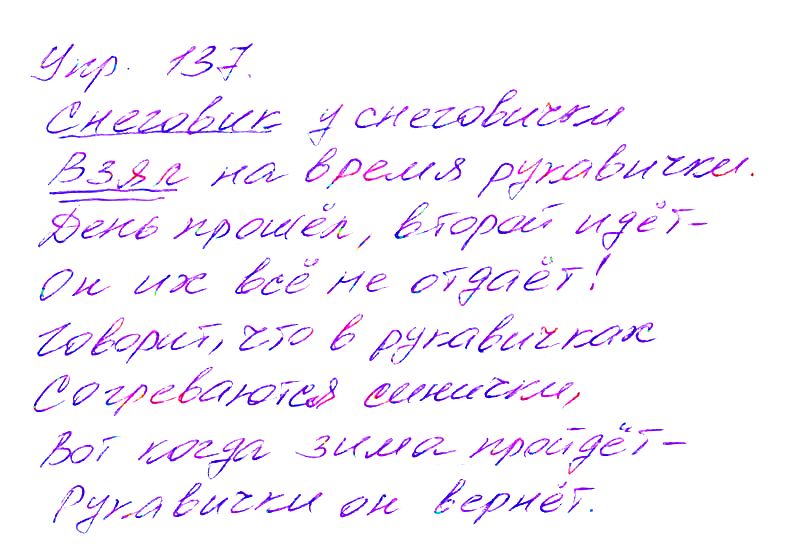 Упр. 137.
Снеговик у снеговички
Взял на время рукавички.
День прошёл, второй идёт-
Он их всё не отдаёт!
Говорит, что в рукавичках
Согреваются синички,
Вот когда зима пройдёт-
Рукавички он вернёт.